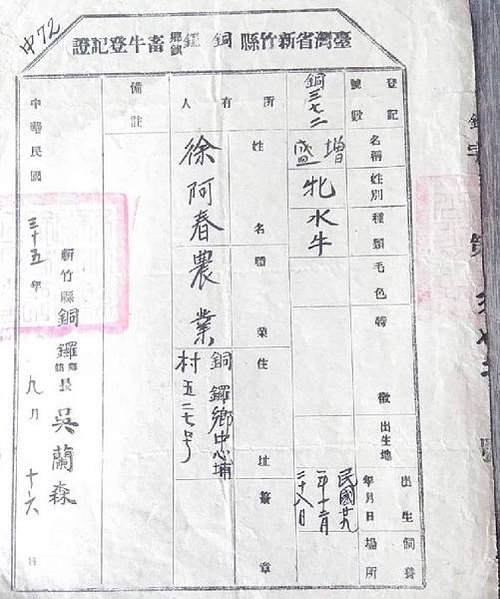 中72
臺灣省新竹縣銅鑼鄉鎮畜牛登記證
登記號數
銅三七二
名稱
增盛
性別
牝
種類
水牛
毛色
特徵
出生地
出生年月日
民國廿九年十二月二十八日
飼養場所
所有人
姓名
徐阿春
職業
農業
住址
銅鑼鄉中心埔村五二七号
簽章
備註
中華民國三十五年九月十六日
新竹縣銅鑼鄉鎮長吳蘭森